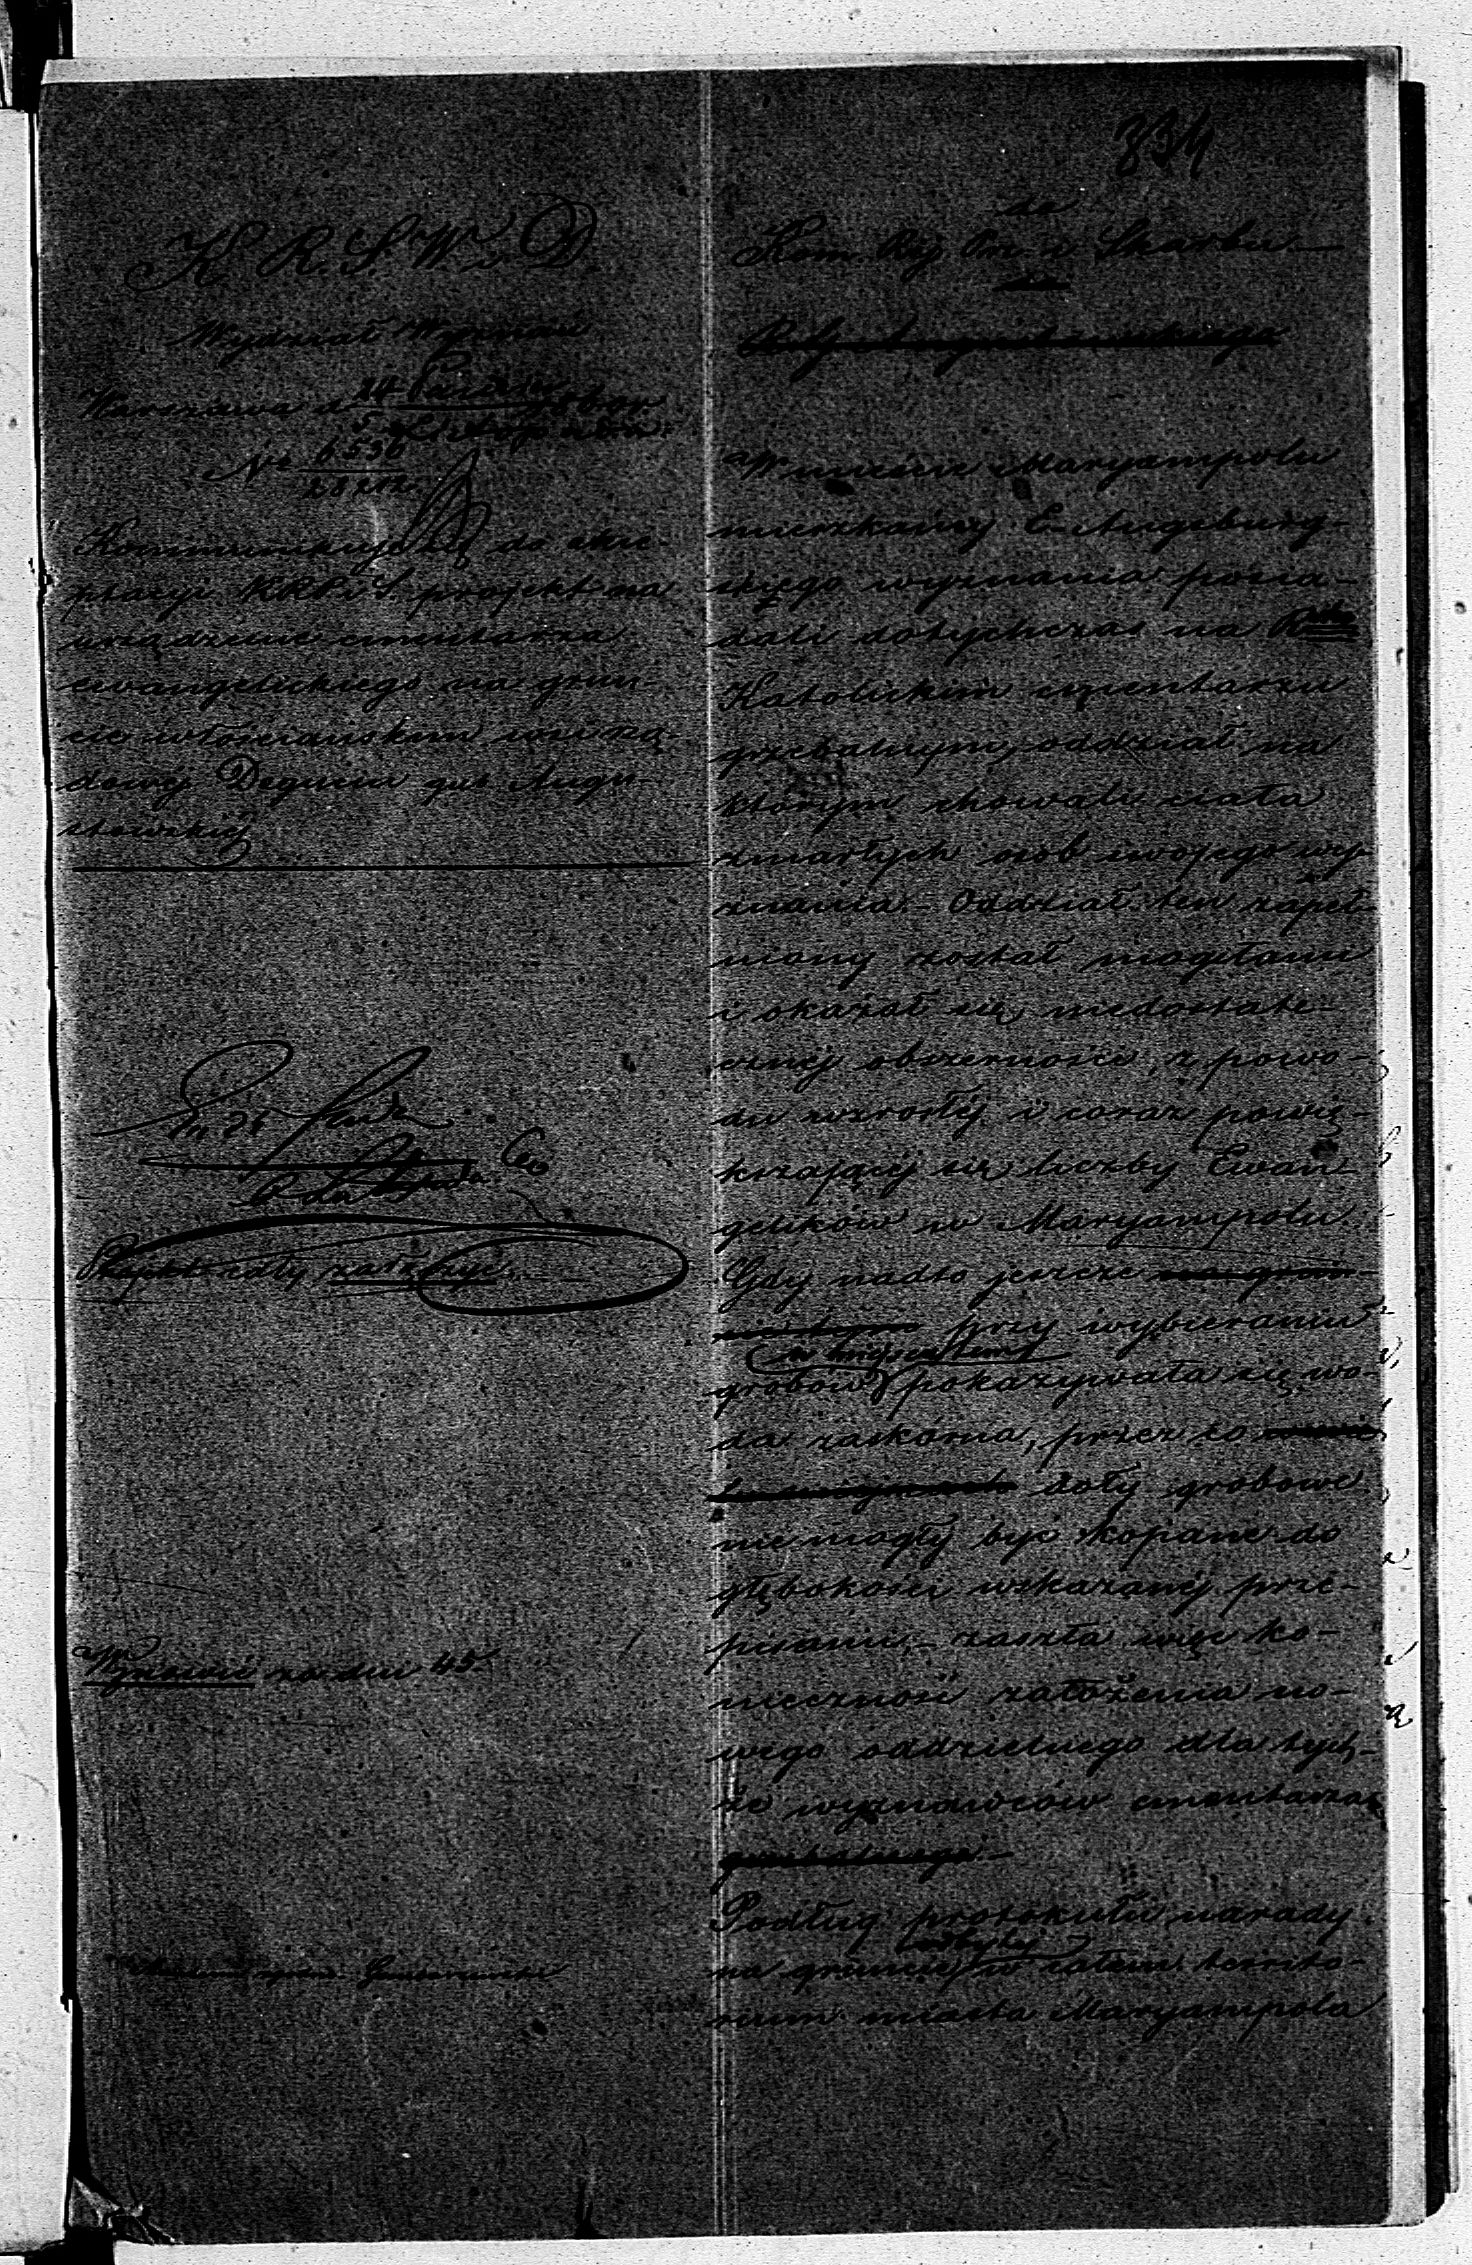 834
K. R. S. W. i D.
Wydział Wyznań
Warszawa d 24 Paźdz
5
Nr 6536
28212
Kommunikuje się do
KRP i S projekt na
urządzenie cmentarza
ewangelickiego na grun-
cie włościańskim wsi rzą-
dowej Degucie gub Augu-
stowskiej
Wyznań
Kom. Rz. Prz. i Skarbu
W mieście Maryampolu
mieszkańcy E-Augsburg-
skiego wyznania posia-
dali dotychczas na
Katolickim cmentarzu
grzebalnym, oddział, na
którym chowali ciała
zmarłych osób swojego wy-
znania.- Oddział ten zapeł-
niony został mogiłami
i okazał się niedostate-
cznej obszerności, z powo-
du wzrosłej i coraz powię-
kszającej się liczby Ewan-
gelików w Maryampolu.
Gdy nadto jeszcze
przy wybieraniu
w miejscu tem
grobów pokazywała się wo-
da zaskórna, przez co
doły grobowe
nie mogły być kopane do
głębokości wskazanej prze-
pisami,- zaszła więc ko-
nieczność założenia no-
wego oddzielnego dla tych-
że wyznawców cmentarza
Podług protokułu narady
odbytej
na gruncie, w całem territo-
rium miasta Maryampola